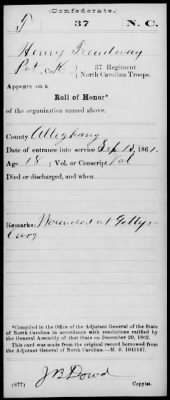 (Confederate.)
T 37 N. C.
Henry Treadway
Pvt K, 37 Regiment
North Carolina Troops.
Appears on a
Roll of Honor*
of the organization named above.
County Alleghany
Date of entrance into service Sep 15, 1861.
Age 18; Vol. or Conscript Vol
Died or discharged, and when
Remarks: Wounded at Gettys-
burg
*Compiled in the Office of the Adjutant General of the State
of North Carolina in accordance with resolutions ratified by
the General Assembly of that State on December 20, 1862.
This card was made from the original record borrowed from
the Adjutant General of North Carolina.—M. S. 1045167.
J B Dowd
(627) Copyist.